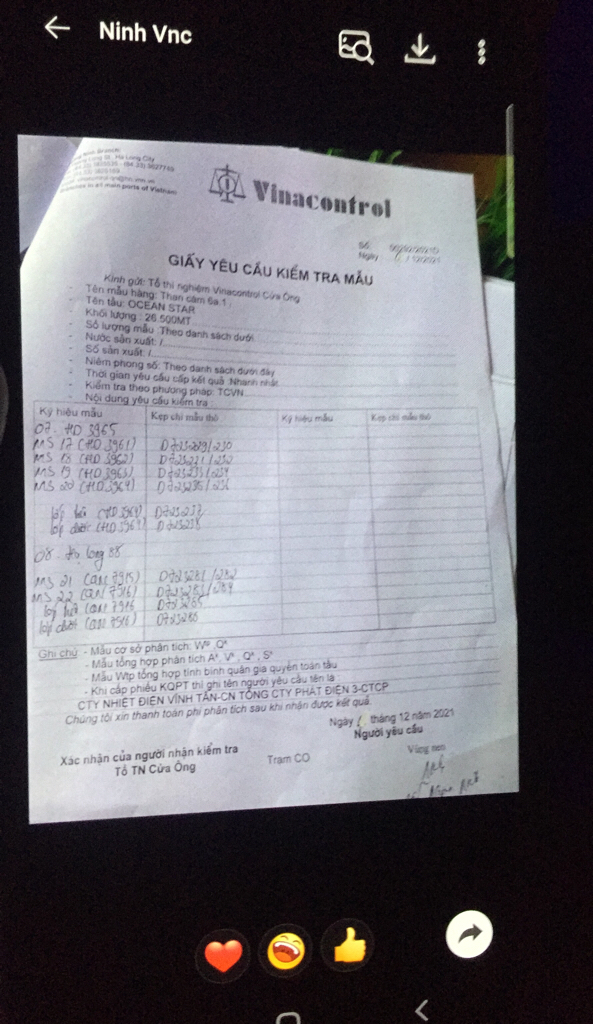 Ninh Vnc
Ha Long City
in all main ports of Vietnam
Vinacontrol
Số:
Ngày /12/2021
GIẤY YÊU CẦU KIỂM TRA MẪU
Kính gửi: Tổ thí nghiệm Vinacontrol Cửa Ông
- Tên mẫu hàng: Than cám 6a.1
- Tên tàu: OCEAN STAR
- Khối lượng : 26.500MT
- Số lượng mẫu: Theo danh sách dưới
- Nước sản xuất: /
- Số sản xuất: /
- Niêm phong số: Theo danh sách dưới đây
- Thời gian yêu cầu cấp kết quả: Nhanh nhất
- Kiểm tra theo phương pháp: TCVN
- Nội dung yêu cầu kiểm tra :
Ký hiệu mẫu Kẹp chì mẫu thô Ký hiệu mẫu Kẹp chì mẫu thô
07. HD 3965
MS 17 (HD 3961) D723229/230
MS 18 (HD 3962) D723231/232
MS 19 (HD 3963) D723233/234
MS 20 (HD 3964) D723235/236
(HD 3964) D723237
lớp dưới (HD 3964) D723238
08.
MS 21 (QN 7915) D723281/282
MS 22 (QN 7916) D723283/284
(QN 7916
lớp dưới (QN 7916)
Ghi chú: - Mẫu cơ sở phân tích: Wᵗᵖ, Qᵏ
- Mẫu tổng hợp phân tích Aᵏ, Vᵏ, Qᵏ, Sᵏ
- Mẫu Wtp tổng hợp tính bình quân gia quyền toàn tàu
- Khi cấp phiếu KQPT thì ghi tên người yêu cầu tên là :
CTY NHIỆT ĐIỆN VĨNH TÂN-CN TỔNG CTY PHÁT ĐIỆN 3-CTCP
Chúng tôi xin thanh toán phí phân tích sau khi nhận được kết quả.
Ngày tháng 12 năm 2021
Xác nhận của người nhận kiểm tra Trạm CO Người yêu cầu
Tổ TN Cửa Ông